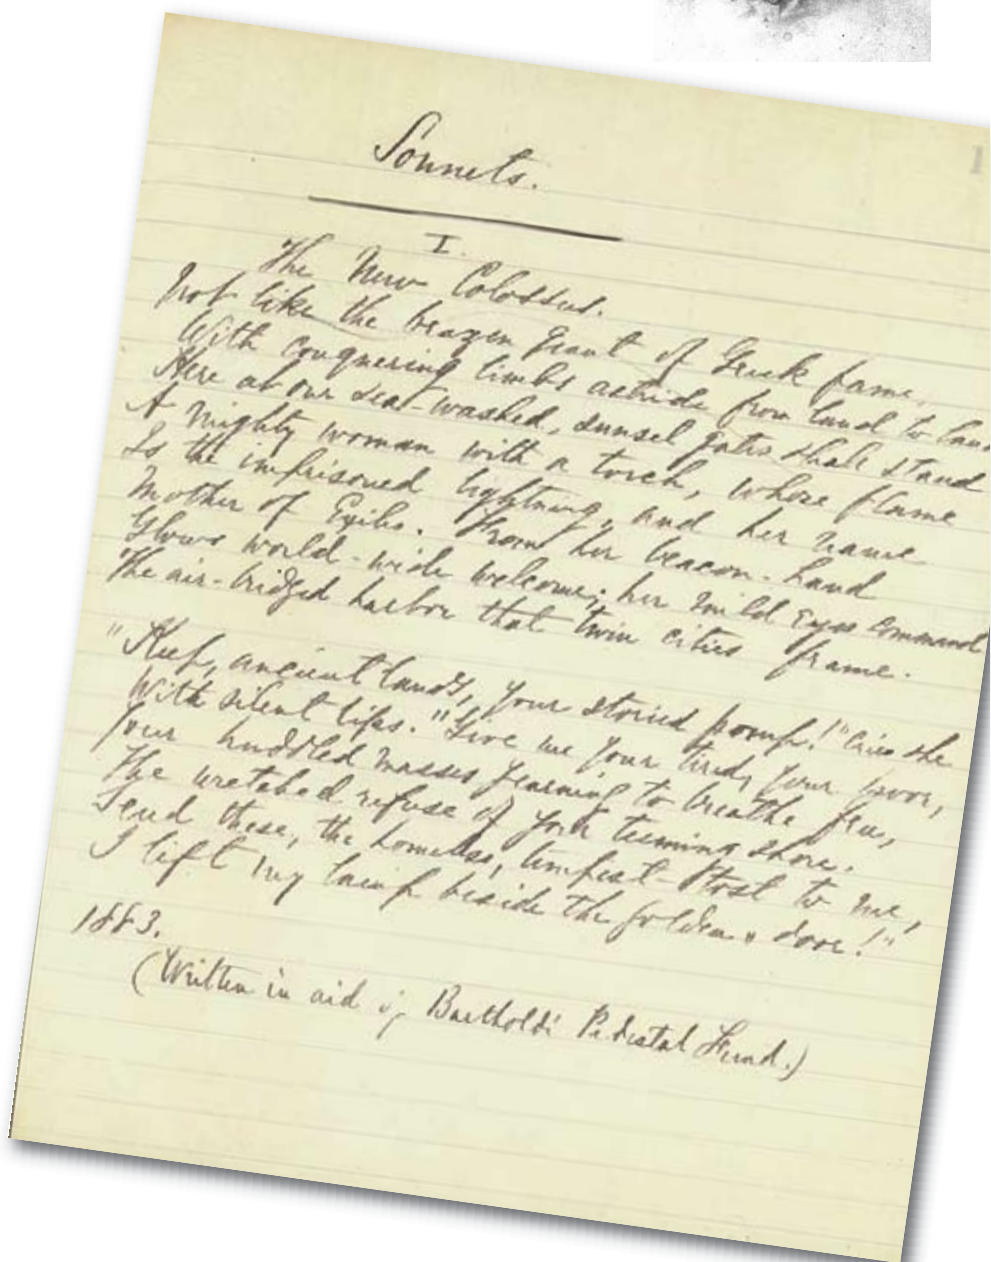 Sonnets.
I.
The New Colossus.
Not like the brazen giant of Greek fame,
With conquering limbs astride from land to land
Here at our sea-washed, sunset gates shall stand
A mighty woman with a torch, whose flame
Is the imprisoned lightning, and her name
Mother of Exiles. From her beacon-hand
Glows world-wide welcome; her mild eyes command
The air-bridged harbor that twin cities frame.
"Keep, ancient lands, your storied pomp!" cries she
With silent lips. "Give me your tired, your poor,
Your huddled masses yearning to breathe free,
The wretched refuse of your teeming shore.
Send these, the homeless, tempest-tost to me,
I lift my lamp beside the golden door!"
1883.
(Written in aid of Bartholdi Pedestal Fund.)